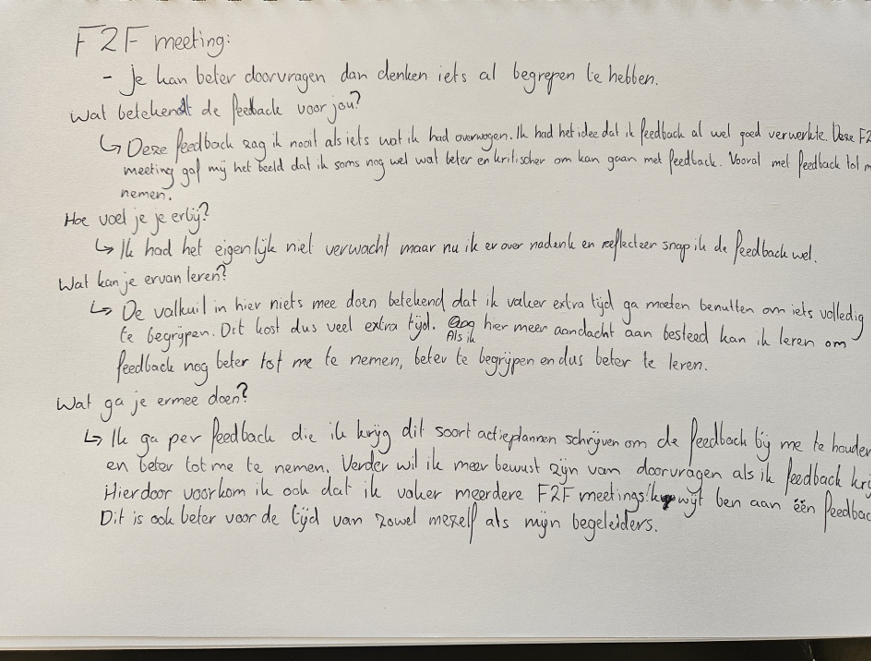 F2F meeting:
- Je kan beter doorvragen dan denken iets al begrepen te hebben.
Wat betekendt de feedback voor jou?
↳ Deze feedback zag ik nooit als iets wat ik had overwogen. Ik had het idee dat ik feedback al wel goed verwerkte. Deze F2
meeting gaf mij het beeld dat ik soms nog wel wat beter en kritischer om kan gaan met feedback. Vooral met feedback tot m
nemen.
Hoe voel je je erbij?
↳ Ik had het eigenlijk niet verwacht maar nu ik er over nadenk en reflecteer snap ik de feedback wel.
Wat kan je ervan leren?
↳ De valkuil in hier niets mee doen betekend dat ik vaker extra tijd ga moeten benutten om iets volledig
te begrijpen. Dit kost dus veel extra tijd. Als ik hier meer aandacht aan besteed kan ik leren om
feedback nog beter tot me te nemen, beter te begrijpen en dus beter te leren.
Wat ga je ermee doen?
↳ Ik ga per feedback die ik krijg dit soort actieplannen schrijven om de feedback bij me te houden
en beter tot me te nemen. Verder wil ik meer bewust zijn van doorvragen als ik feedback kri
Hierdoor voorkom ik ook dat ik vaker meerdere F2F meetings kwijt ben aan één feedbac
Dit is ook beter voor de tijd van zowel mezelf als mijn begeleiders.